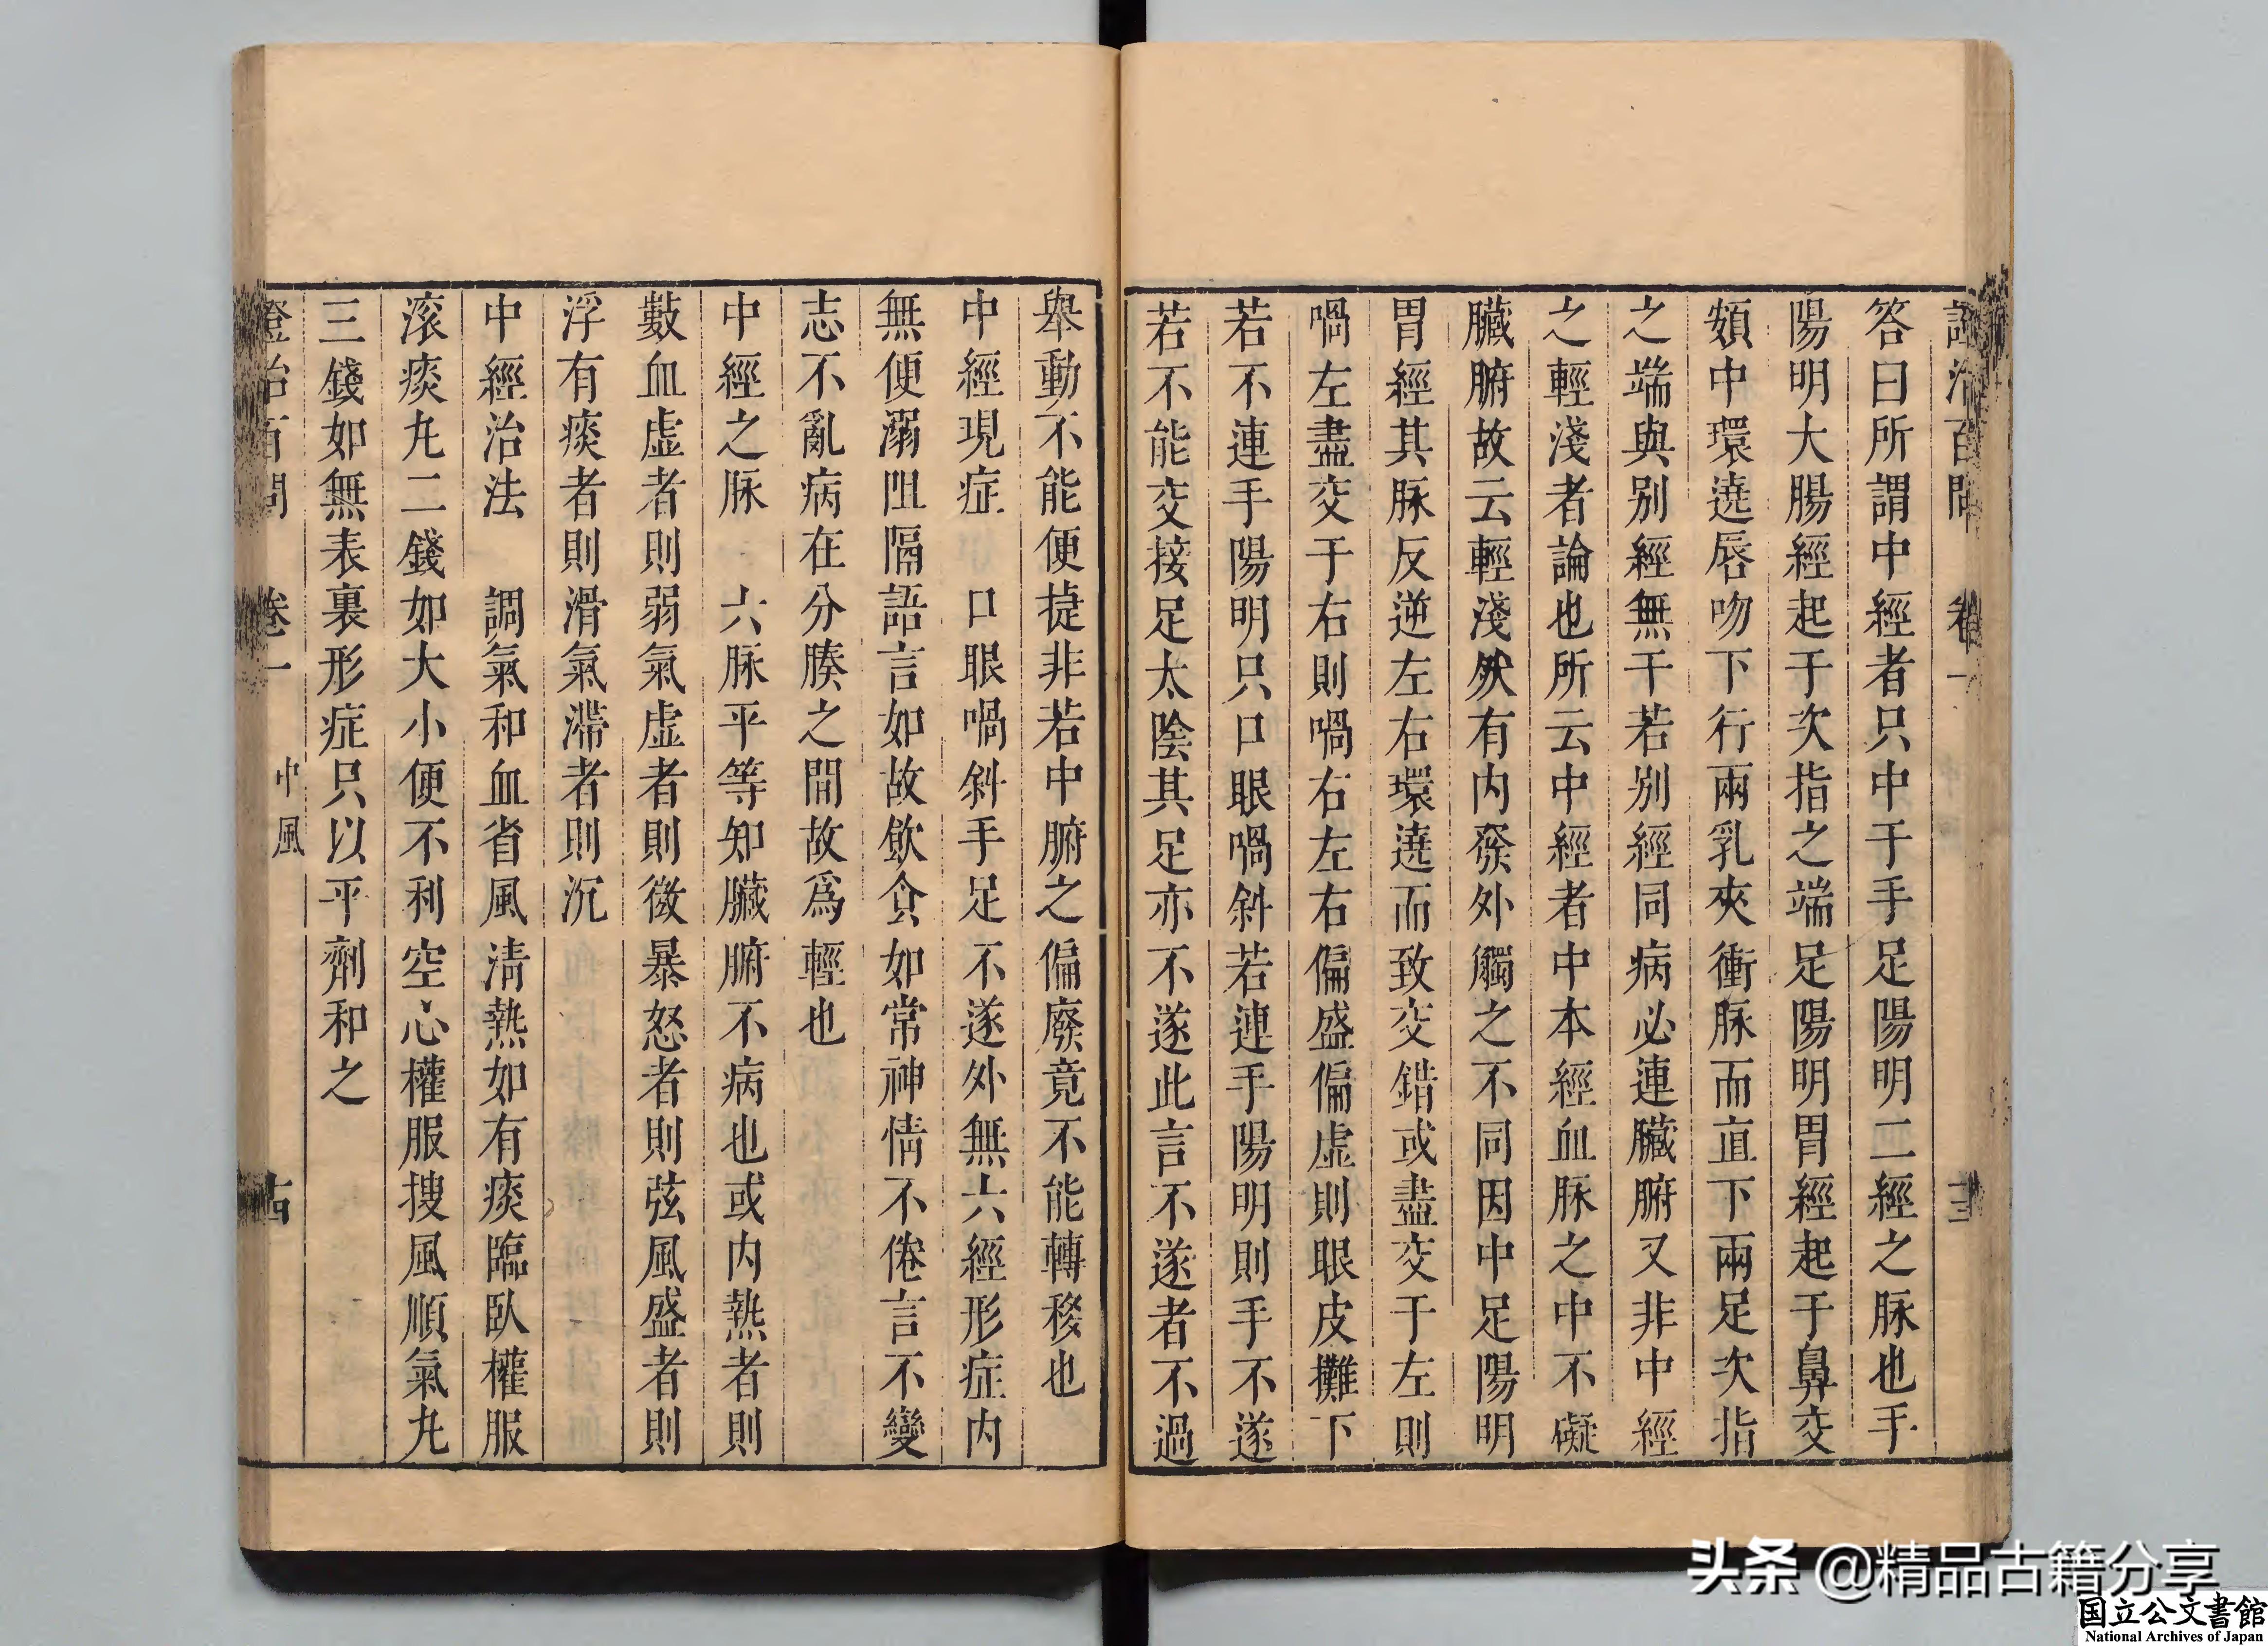 證治百問 卷一
答曰所謂中經者只中于手足陽明二經之脉也手
陽明大腸經起于次指之端足陽明胃經起于鼻交
頞中環遶唇吻下行兩乳夾衝脉而直下兩足次指
之端與別經無干若別經同病必連臟腑又非中經
之輕淺者論也所云中經者中本經血脉之中不礙
臟腑故云輕淺然有内發外觸之不同因中足陽明
胃經其脉反逆左右環遶而致交錯或盡交于左則
喎左盡交于右則喎右左右偏盛偏虛則眼皮攤下
若不連手陽明只口眼喎斜若連手陽明則手不遂
若不能交接足太陰其足亦不遂此言不遂者不過
舉動不能便捷非若中腑之偏廢竟不能轉移也
中經現症 口眼喎斜手足不遂外無六經形症内
無便溺阻隔語言如故飲食如常神情不倦言不變
志不亂病在分腠之間故爲輕也
中經之脉 六脉平等知臟腑不病也或内熱者則
數血虛者則弱氣虛者則微暴怒者則弦風盛者則
浮有痰者則滑氣滯者則沉
中經治法 調氣和血省風清熱如有痰臨臥權服
滚痰丸二錢如大小便不利空心權服搜風順氣丸
三錢如無表裏形症只以平劑和之
證治百問 卷一 中風
头条 @精品古籍分享
国立公文書館
National Archives of Japan